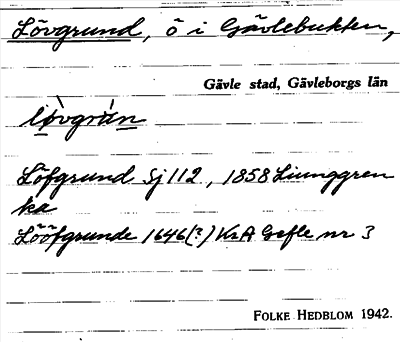 Lövgrund, ö i Gävlebukten,
Gävle stad, Gävleborgs län
lövgrún
Löfgrund Sj 112, 1858 Liunggren
ka
Lööfgrunde 1646(?) KrA Gefle nr 3
FOLKE HEDBLOM 1942.